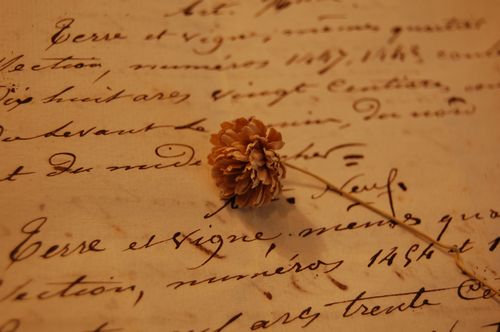 Terre et vigne, mêmes quartier
Section, numéros 1447, 1448 cont
Dix huit ares vingt Centiares,
du levant le chemin, du nord
et du midi
Neuf.
Terre et vigne, mêmes qua
Section, numéros 1454 et 1
ares trente Ce